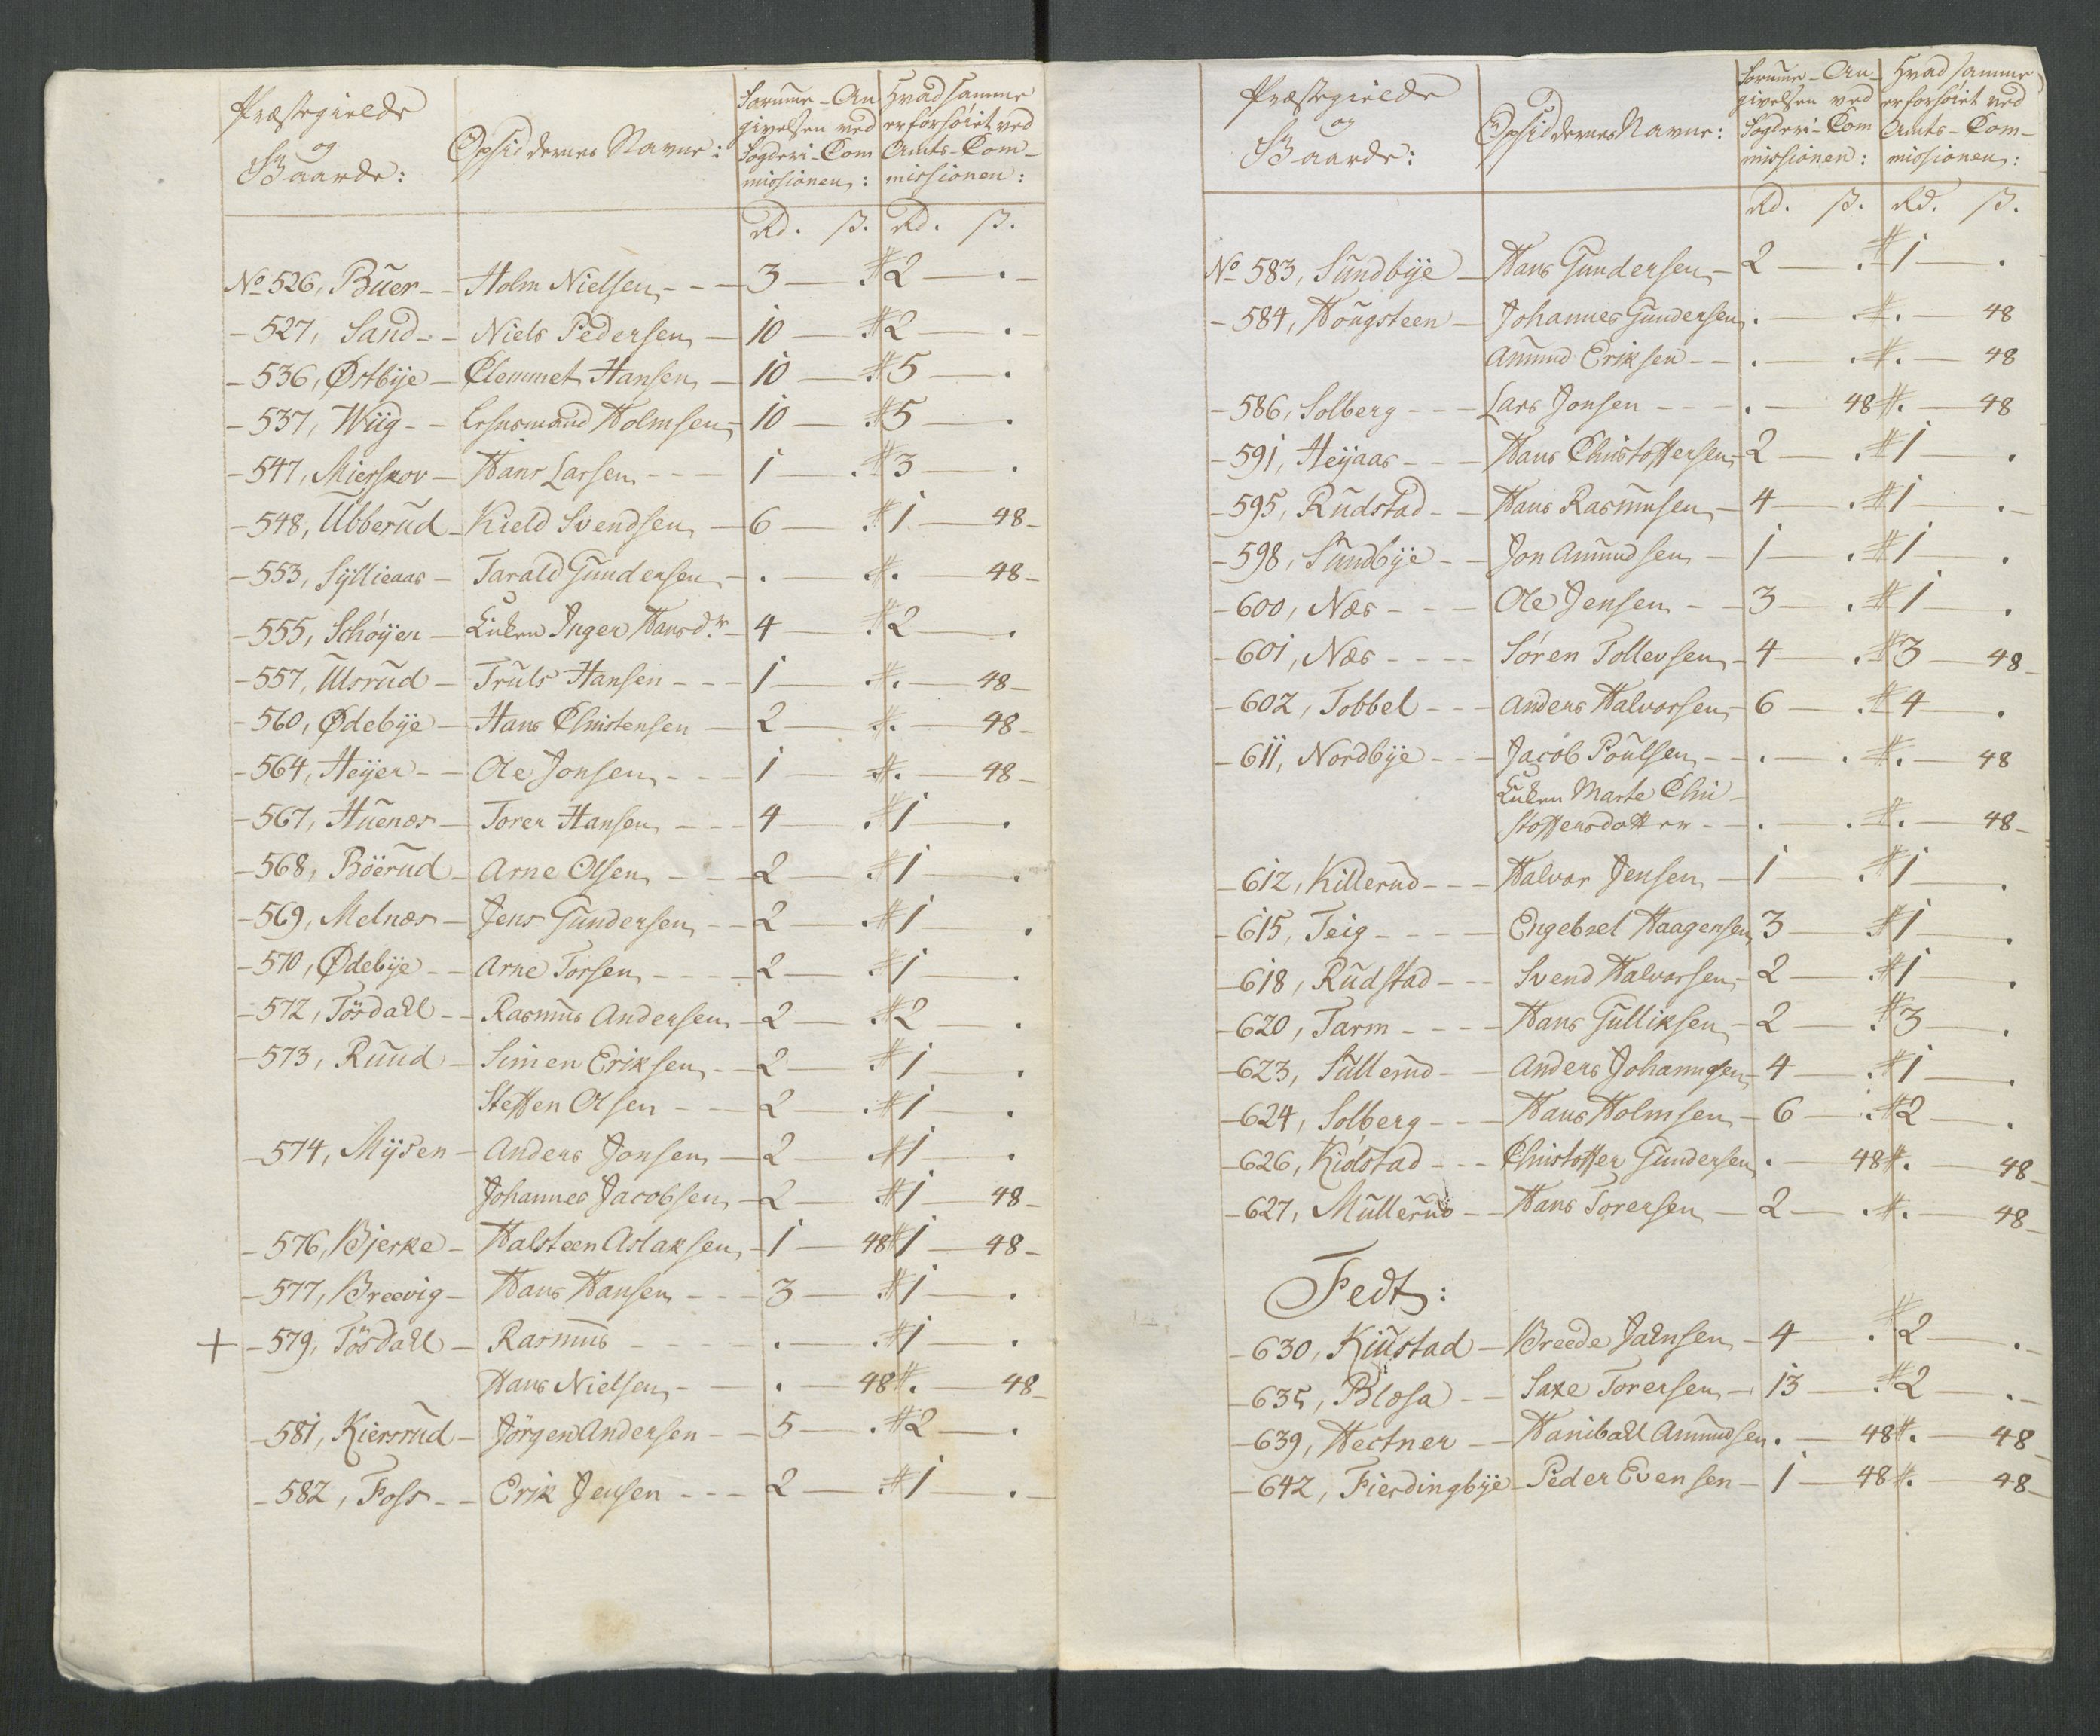 Præstegielde
og
Gaarde:
Opsiddernes Navne:
Summe-An
givelsen ved
Fogderi-Com
missionen:
Hvad samme
er forhöiet ved
Amts-Com-
missionen:
Rd. ß. Rd. ß.
No 526, Buer -- Holm Nielsen --- 3 — . # 2 — . -
- 527, Sand -- Niels Pedersen — 10 — . # 2 — . -
- 536, Østbÿe — Clemmet Hansen — 10 — . # 5 — .
- 537, Wiig -- Lehnsmand Holmsen — 10 — . # 5 — .
- 547, Mierskov — Hans Larsen --- 1 — . # 3 — .
- 548, Ubberud — Kield Svendsen — 6 — . # 1 — 48 -
- 553, Sÿllieaas — Tarald Gundersen - . — . # . — 48 -
- 555, Schöÿen — Enken Inger Hansdr — 4 — . # 2 — .
- 557, Ulsrud — Truls Hansen --- 1 — . # . — 48 -
- 560, Ødebÿe — Hans Christensen — 2 — . # . — 48 -
- 564, Heÿer -- Ole Jonsen --- 1 — . # . — 48 -
- 567, Huenæs — Torer Hansen --- 4 — . # 1 — .
- 568, Böerud — Arne Olsen --- 2 — . # 1 — .
- 569, Melnæs — Jens Gundersen -- 2 — . # 1 — .
- 570, Ødebÿe -- Arne Torsen --- 2 — . # 1 — .
- 572, Tösdall -- Rasmus Andersen — 2 — . # 2 — .
- 573, Ruud — Simen Eriksen -- 2 — . # 1 — .
Steffen Olsen --- 2 — . # 1 — .
- 574, Mÿsen — Anders Jonsen — 2 — . # 1 — .
Johannes Jacobsen — 2 — . # 1 — 48 -
- 576, Bjerke — Halsteen Aslaksen — 1 — 48 # 1 — 48 -
- 577, Breevig — Hans Hansen --- 3 — . # 1 — .
+ - 579, Tösdall — Rasmus ---- . — . # 1 — .
Hans Nielsen -- . — 48 # . — 48 -
- 581, Kiersrud — Jörgen Andersen -- 5 — . # 2 — .
- 582, Foss -- Erik Jensen --- 2 — . # 1 — . -
Præstegielde
og
Gaarde:
Opsiddernes Navne:
Summe-An-
givelsen ved
Fogderi-Com
missionen:
Hvad samme
er forhöiet ved
Amts-Com-
missionen:
Rd. ß. Rd. ß.
No 583, Sundbÿe — Hans Gundersen — 2 — . # 1 — .
- 584, Hougsteen — Johannes Gundersen . — . # . — 48
Amund Eriksen -- . — . # . — 48
- 586, Solberg --- Lars Jonsen --- . — 48 # . — 48
- 591, Heÿaas --- Hans Christoffersen — 2 — . # 1 — .
- 595, Rudstad -- Hans Rasmusen — 4 — . # 1 — . -
- 598, Sundbÿe -- Jon Amundsen — 1 — . # 1 — .
- 600, Næs --- Ole Jensen -- 3 — . # 1 — .
- 601, Næs ---- Sören Tollevsen — 4 — . # 3 — 48 -
- 602, Tobbel --- Anders Halvorsen — 6 — . # 4 — .
- 611, Nordbÿe --- Jacob Poulsen -- . — . # . — 48
Enken Marte Chri-
stoffersdatter -- . — . # . — 48 -
- 612, Killerud --- Halvor Jensen — 1 — . # 1 — .
- 615, Teig ---- Engebret Haagensen 3 — # 1 — .
- 618, Rudstad --- Svend Halvorsen — 2 — . # 1 — .
- 620, Tarm ---- Hans Gulliksen — 2 — . # 3 — .
- 623, Sullerud -- Anders Johannesen — 4 — . # 1 — .
- 624, Solberg --- Hans Holmsen — 6 — . # 2 — .
- 626, Kidstad --- Christoffer Gundersen . — 48 # . — 48 -
- 627, Mullerud -- Hans Torersen — 2 — . # . — 48 -
Fedt:
- 630, Kiustad — Breede Jahnsen — 4 . # 2 — . -
- 635, Blæsa -- Saxe Torersen — 13 — . # 2 — . -
- 639, Hectner — Haniball Amundsen . — 48 # . — 48 -
- 642, Fierdingbÿe — Peder Evensen — 1 — 48 # . — 48 -